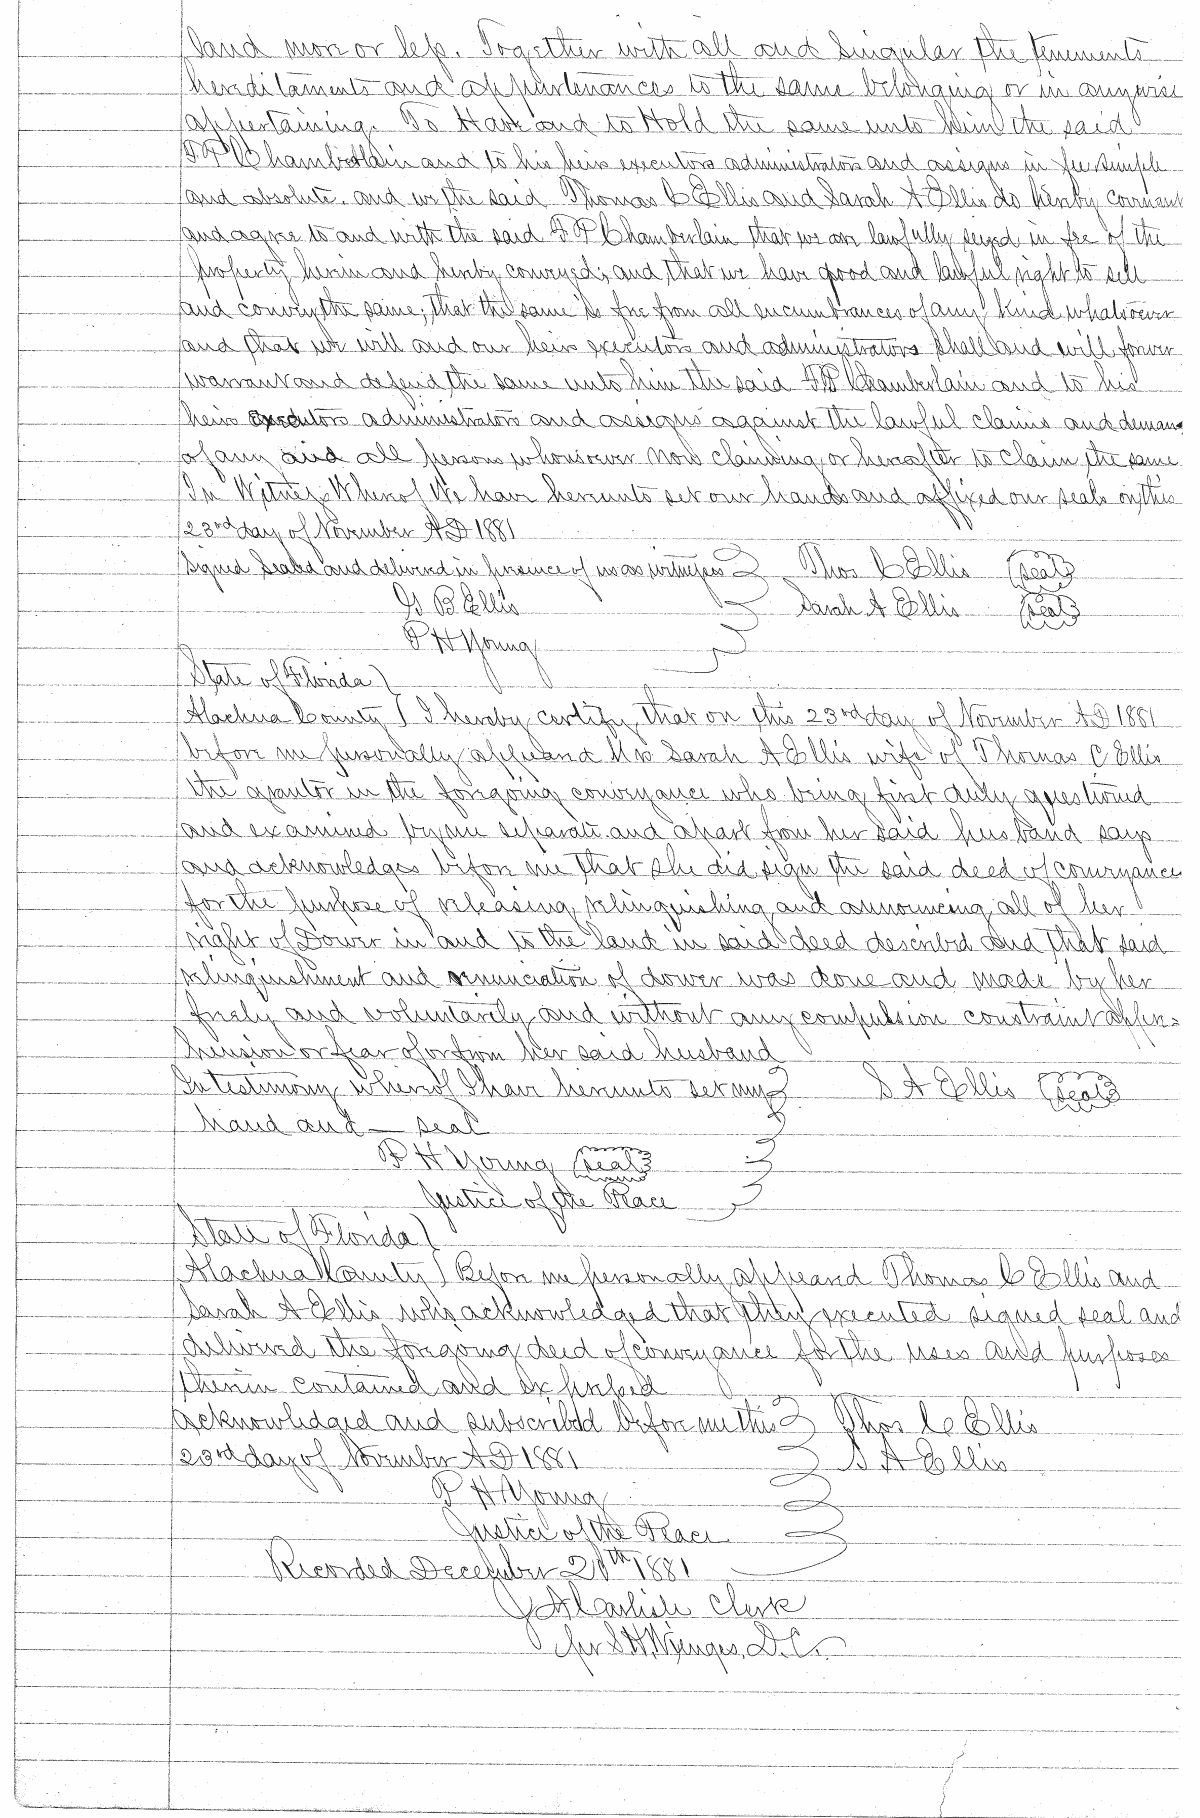 land more or less. Together with all and Singular the tenements
hereditaments and appurtenances to the same belonging or in anywise
appertaining. To Have and to Hold the same unto him the said
F P Chamberlain and to his heirs executors administrators and assigns in fee simple
and absolute. and we the said Thomas C Ellis and Sarah A Ellis do hereby covenant
and agree to and with the said F P Chamberlain that we are lawfully seized in fee of the
property herein and hereby conveyed; and that we have good and lawful right to sell
and convey the same; that the same is free from all encumbrances of any kind whatsoever
and that we will and our heirs executors and administrators shall and will forever
warrant and defend the same unto him the said F P Chamberlain and to his
heirs executors administrators and assigns against the lawful claims and deman
of any and all persons whomsoever now claiming or hereafter to claim the same
In Witness Whereof We have hereunto set our hands and affixed our seals on this
23rd day of November A D 1881
Signed Sealed and delivered in presence of us as witnesses Thos C Ellis (seal)
G B Ellis Sarah A Ellis (seal)
P H Young
State of Florida
Alachua County I hereby certify that on this 23rd day of November A D 1881
before me personally appeared Mrs Sarah A Ellis wife of Thomas C Ellis
the grantor in the foregoing conveyance who being first duly questioned
and examined by me separate and apart from her said husband says
and acknowledges before me that she did sign the said deed of conveyance
for the purpose of releasing, relinquishing and announcing all of her
right of Dower in and to the land in said deed described and that said
relinquishment and renunciation of dower was done and made by her
freely and voluntarily and without any compulsion constraint appre=
hension or fear of or from her said husband
In testimony whereof I have hereunto set my S A Ellis (seal)
hand and — seal
P H Young (seal)
Justice of the Peace
State of Florida
Alachua County Before me personally appeared Thomas C Ellis and
Sarah A Ellis who acknowledged that they executed signed seal and
delivered the foregoing deed of conveyance for the uses and purposes
therein contained and expressed
acknowledged and subscribed before me this Thos C Ellis
23rd day of November A D 1881 S A Ellis
P H Young
Justice of the Peace
Recorded December 20th 1881
J A Carlisle Clerk
per S H Wienges, D.C.